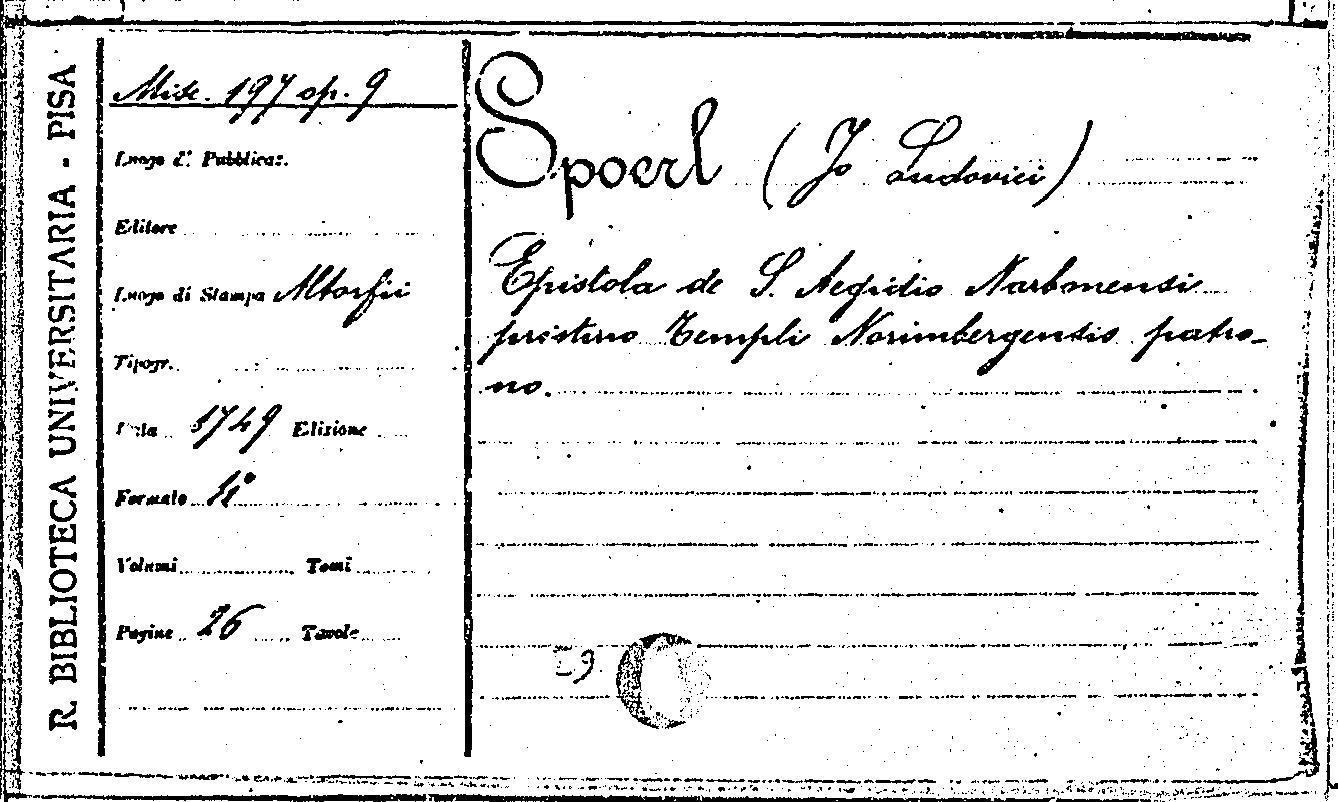 R. BIBLIOTECA UNIVERSITARIA - PISA
Misc. 197 op. 9
Luogo d. Pubblicaz.
Editore
Luogo di Stampa Altorfii
Tipogr.
Data 1749 Edizione
Formato 4°
Volumi Tomi
Pagine 26 Tavole
Spoerl (Jo Ludovici)
Epistola de S. Aegidio Narbonensi
pristino Templi Norimbergensis patro-
no.